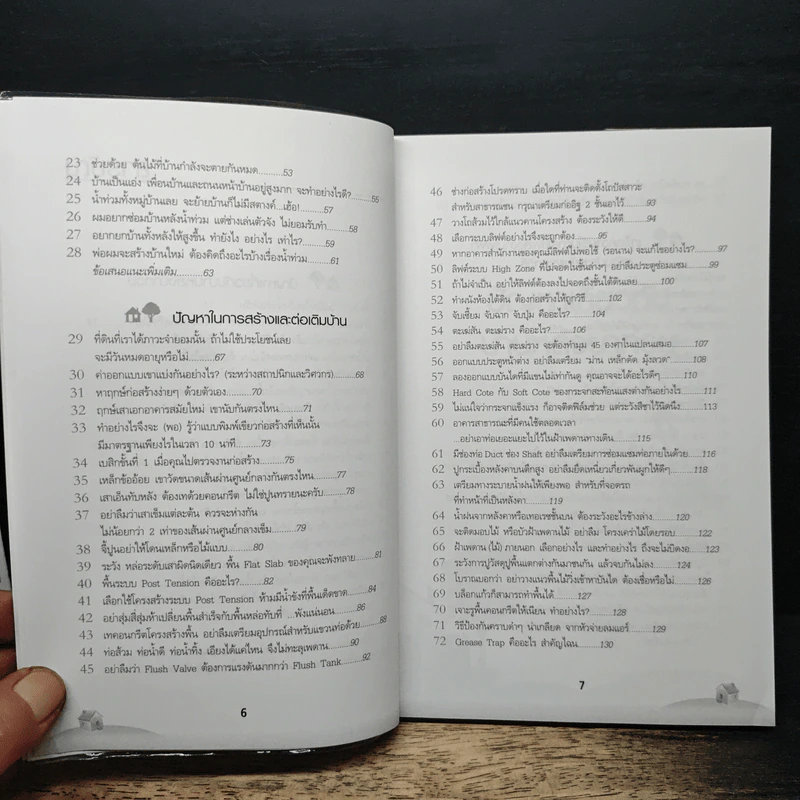 23 ช่วยด้วย ต้นไม้ที่บ้านกำลังจะตายกันหมด..........53
24 บ้านเป็นแอ่ง เพื่อนบ้านและถนนหน้าบ้านอยู่สูงมาก จะทำอย่างไรดี?..........55
25 น้ำท่วมทั้งหมู่บ้านเลย จะย้ายบ้านก็ไม่มีสตางค์...เฮ้อ!..........57
26 ผมอยากซ่อมบ้านหลังน้ำท่วม แต่ช่างเล่นตัวจัง ไม่ยอมรับทำ..........58
27 อยากยกบ้านทั้งหลังให้สูงขึ้น ทำยังไง อย่างไร เท่าไร?..........59
28 พ่อผมจะสร้างบ้านใหม่ ต้องคิดถึงอะไรบ้างเรื่องน้ำท่วม..........61
ข้อเสนอแนะเพิ่มเติม..........63
ปัญหาในการสร้างและต่อเติมบ้าน
29 ที่ดินที่เราได้ภาวะจำยอมนั้น ถ้าไม่ใช้ประโยชน์เลย
จะมีวันหมดอายุหรือไม่..........67
30 ค่าออกแบบเขาแบ่งกันอย่างไร? (ระหว่างสถาปนิกและวิศวกร)..........68
31 หาฤกษ์ก่อสร้างง่ายๆ ด้วยตัวเอง..........70
32 ฤกษ์เสาเอกอาคารสมัยใหม่ เขานับกันตรงไหน..........71
33 ทำอย่างไรจึงจะ (พอ) รู้ว่าแบบพิมพ์เขียวก่อสร้างที่เห็นนั้น
มีมาตรฐานเพียงไรในเวลา 10 นาที..........73
34 เบสิกขั้นที่ 1 เมื่อคุณไปตรวจงานก่อสร้าง..........75
35 เหล็กข้ออ้อย เขาวัดขนาดเส้นผ่านศูนย์กลางกันตรงไหน..........77
36 เสาเอ็นทับหลัง ต้องเทด้วยคอนกรีต ไม่ใช่ปูนทรายนะครับ..........78
37 อย่าลืมว่าเสาเข็มแต่ละต้น ควรจะห่างกัน
ไม่น้อยกว่า 2 เท่าของเส้นผ่านศูนย์กลางเข็ม..........79
38 จี้ปูนอย่าให้โดนเหล็กหรือไม้แบบ..........80
39 ระวัง หล่อระดับเสาผิดนิดเดียว พื้น Flat Slab ของคุณจะพังทลาย..........81
40 พื้นระบบ Post Tension คืออะไร?..........82
41 เลือกใช้โครงสร้างระบบ Post Tension ห้ามมีน้ำขังที่พื้นเด็ดขาด..........84
42 อย่าสุ่มสี่สุ่มห้าเปลี่ยนพื้นสำเร็จกับพื้นหล่อทับที่ ...พังแน่นอน..........86
43 เทคอนกรีตโครงสร้างพื้น อย่าลืมเตรียมอุปกรณ์สำหรับแขวนท่อด้วย..........88
44 ท่อส้วม ท่อน้ำดี ท่อน้ำทิ้ง เอียงได้แค่ไหน จึงไม่ทะลุเพดาน..........90
45 อย่าลืมว่า Flush Valve ต้องการแรงดันมากกว่า Flush Tank..........92
6
46 ช่างก่อสร้างโปรดทราบ เมื่อใดที่ท่านจะติดตั้งโถปัสสาวะ
สำหรับสาธารณชน กรุณาเตรียมก่ออิฐ 2 ชั้นเอาไว้..........93
47 วางโถส้วมไว้ใกล้แนวคานโครงสร้าง ต้องระวังให้ดี..........94
48 เลือกระบบลิฟต์อย่างไรจึงจะถูกต้อง..........95
49 หากอาคารสำนักงานของคุณมีลิฟต์ไม่พอใช้ (รอนาน) จะแก้ไขอย่างไร?..........97
50 ลิฟต์ระบบ High Zone ที่ไม่จอดในชั้นล่างๆ อย่าลืมประตูซ่อมแซม..........99
51 ถ้าไม่จำเป็น อย่าให้ลิฟต์ต้องลงไปจอดถึงชั้นใต้ดินเลย..........100
52 ทำผนังห้องใต้ดิน ต้องก่อสร้างให้ถูกวิธี..........102
53 จับเซี้ยม จับฉาก จับปุ่ม คืออะไร?..........104
54 ตะเฆ่สัน ตะเฆ่ราง คืออะไร?..........106
55 อย่าลืมตะเฆ่สัน ตะเฆ่ราง จะต้องทำมุม 45 องศาในแปลนเสมอ..........107
56 ออกแบบประตูหน้าต่าง อย่าลืมเตรียม "ม่าน เหล็กดัด มุ้งลวด"..........108
57 ลองออกแบบบันไดที่มีแขนไม่เท่ากันดู คุณอาจจะได้อะไรดีๆ..........110
58 Hard Cote กับ Soft Cote ของกระจกสะท้อนแสงต่างกันอย่างไร..........111
59 ไม่แน่ใจว่ากระจกแข็งแรง ก็อาจติดฟิล์มช่วย แต่ระวังสีชาไว้นิดนึง..........113
60 อาคารสาธารณะที่มีคนใช้ตลอดเวลา
...อย่าเอาท่อเยอะแยะไปไว้ในฝ้าเพดานทางเดิน..........115
61 มีช่องท่อ Duct ช่อง Shaft อย่าลืมเตรียมการซ่อมแซมท่อภายในด้วย..........116
62 ปูกระเบื้องหลังคาบนตึกสูง อย่าลืมยึดเหนี่ยวเกี่ยวพันผูกให้ดีๆ..........118
63 เตรียมทางระบายน้ำฝนให้เพียงพอ สำหรับที่จอดรถ
ที่ทำหน้าที่เป็นหลังคา..........119
64 น้ำฝนจากหลังคาหรือเทอเรซชั้นบน ต้องระวังอะไรข้างล่าง..........120
65 จะติดมอบไม้ หรือบัวฝ้าเพดานไม้ อย่าลืม โครงเคร่าไม้โดยรอบ..........122
66 ฝ้าเพดาน (ไม้) ภายนอก เลือกอย่างไร และทำอย่างไร ถึงจะไม่บิดงอ..........123
67 ระวังการปูวัสดุปูพื้นแตกต่างกันมาชนกัน แล้วจบกันไม่ลง..........124
68 โบราณบอกว่า อย่าวางแนวพื้นไม้วิ่งเข้าหาบันได ต้องเชื่อหรือไม่..........126
69 บล็อกแก้วก็สามารถทำพื้นได้..........127
70 เจาะรูพื้นคอนกรีตให้เนียน ทำอย่างไร?..........128
71 วิธีป้องกันคราบดำๆ น่าเกลียด จากหัวจ่ายลมแอร์..........129
72 Grease Trap คืออะไร สำคัญไฉน..........130
7